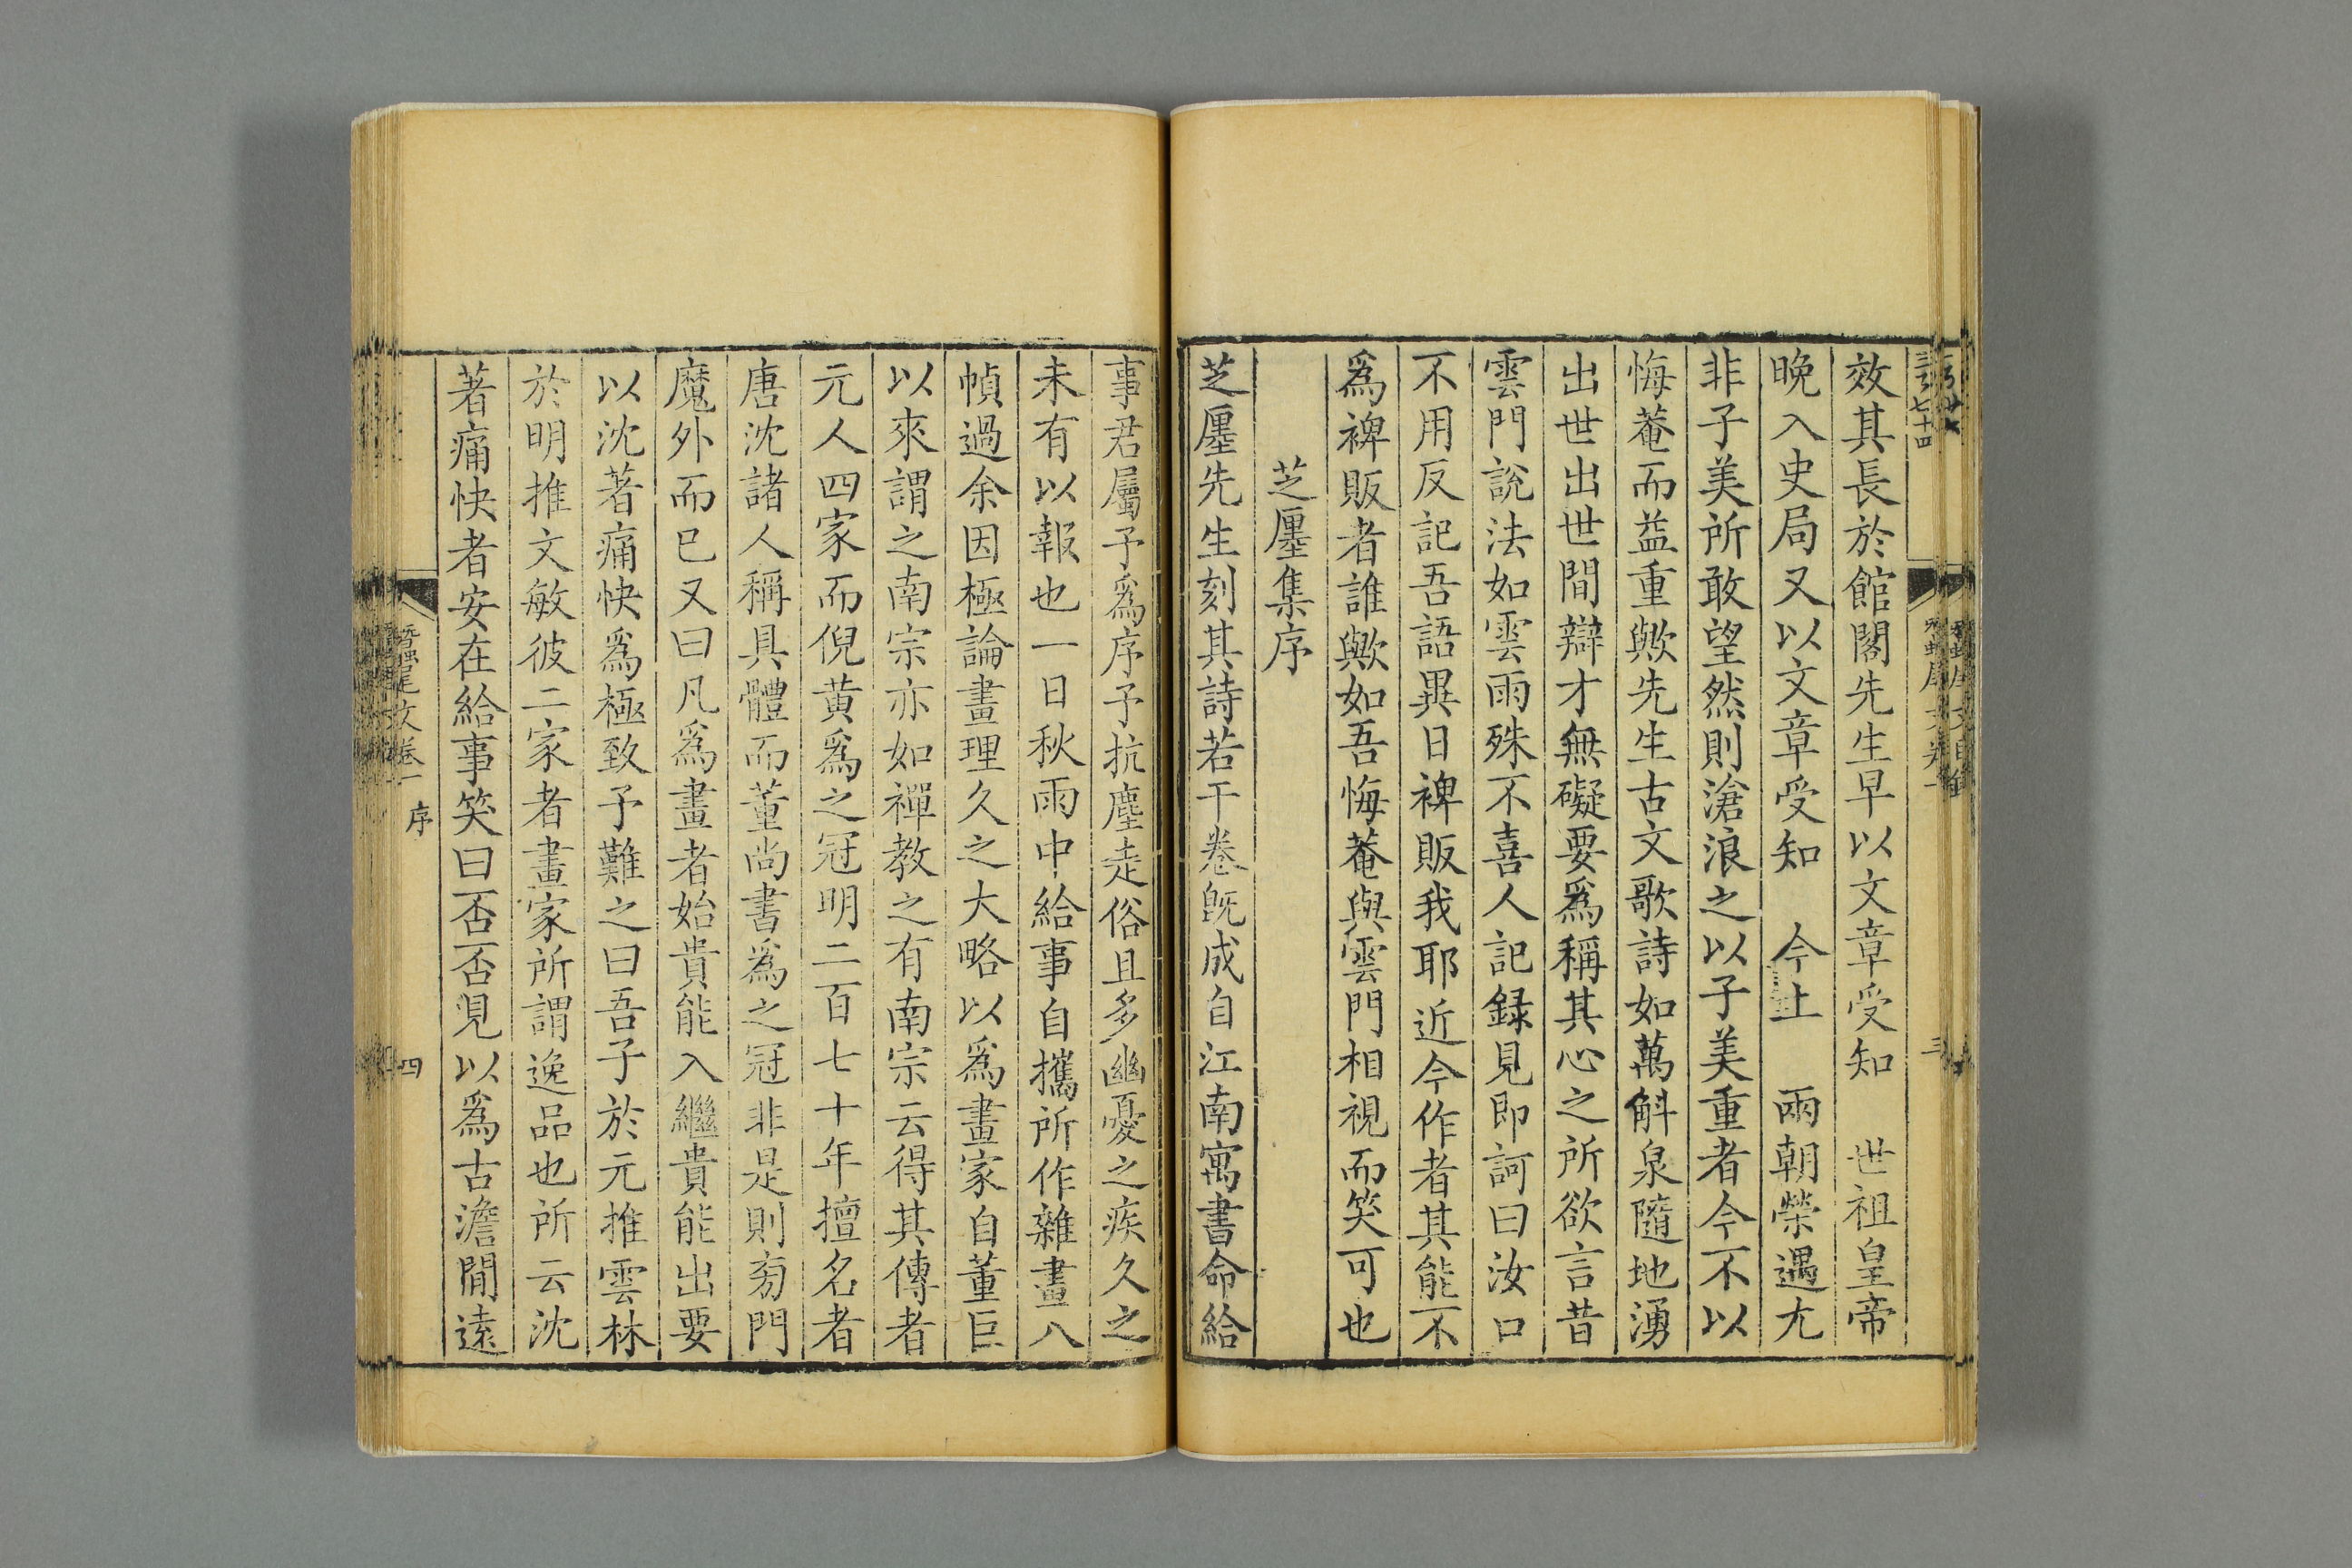 效其長於館閣先生早以文章受知　世祖皇帝
晚入史局又以文章受知　今上　兩朝榮遇尤
非子美所敢望然則滄浪之以子美重者今不以
悔菴而益重歟先生古文歌詩如萬斛泉隨地湧
出世出世間辯才無礙要爲稱其心之所欲言昔
雲門說法如雲雨殊不喜人記録見即訶曰汝口
不用反記吾語異日裨販我耶近今作者其能不
爲裨販者誰歟如吾悔菴與雲門相視而笑可也
芝廛集序
芝廛先生刻其詩若干卷旣成自江南寓書命給
事君屬予爲序予抗塵走俗且多幽憂之疾久之
未有以報也一日秋雨中給事自攜所作雜畫八
幀過余因極論畫理久之大略以爲畫家自董巨
以來謂之南宗亦如禪教之有南宗云得其傳者
元人四家而倪黄爲之冠明二百七十年擅名者
唐沈諸人稱具體而董尚書爲之冠非是則旁門
魔外而已又曰凡爲畫者始貴能入繼貴能出要
以沈著痛快爲極致予難之曰吾子於元推雲林
於明推文敏彼二家者畫家所謂逸品也所云沈
著痛快者安在給事笑曰否否見以爲古澹閒遠
蠶尾文卷一
序
四